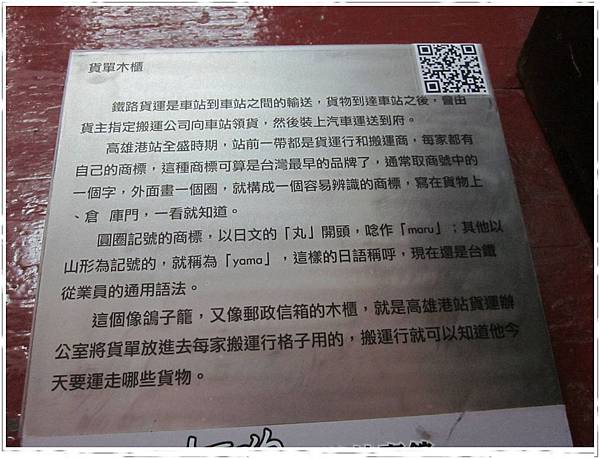 貨單木櫃
鐵路貨運是車站到車站之間的輸送，貨物到達車站之後，會由
貨主指定搬運公司向車站領貨，然後裝上汽車運送到府。
高雄港站全盛時期，站前一帶都是貨運行和搬運商，每家都有
自己的商標，這種商標可算是台灣最早的品牌了，通常取商號中的
一個字，外面畫一個圈，就構成一個容易辨識的商標，寫在貨物上
、倉 庫門，一看就知道。
圓圈記號的商標，以日文的「丸」開頭，唸作「maru」；其他以
山形為記號的，就稱為「yama」，這樣的日語稱呼，現在還是台鐵
從業員的通用語法。
這個像鴿子籠，又像郵政信箱的木櫃，就是高雄港站貨運辦
公室將貨單放進去每家搬運行格子用的，搬運行就可以知道他今
天要運走哪些貨物。